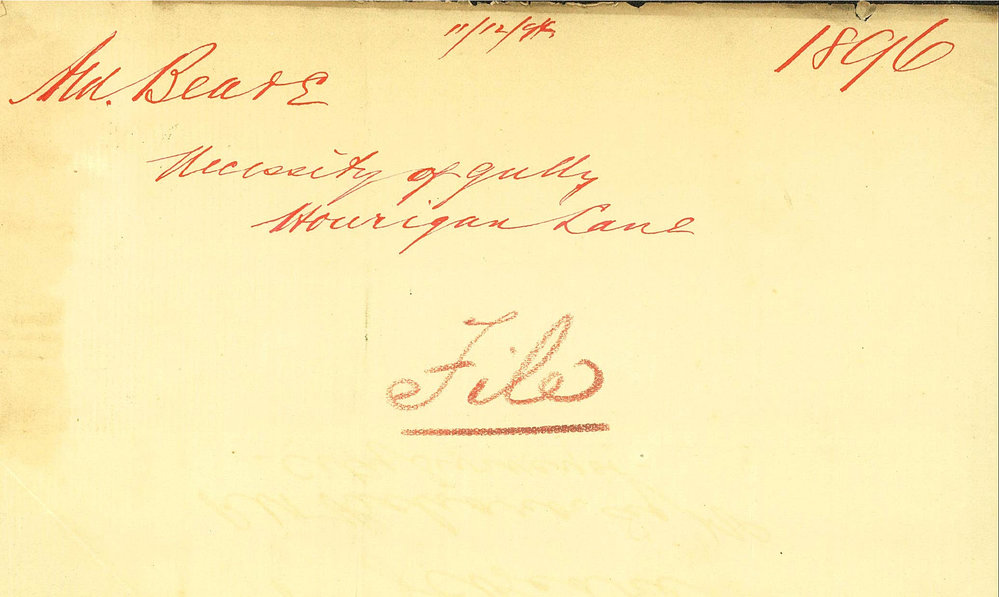 1896
Ald. Beare
Necessity of gully
Hourigan Lane
File